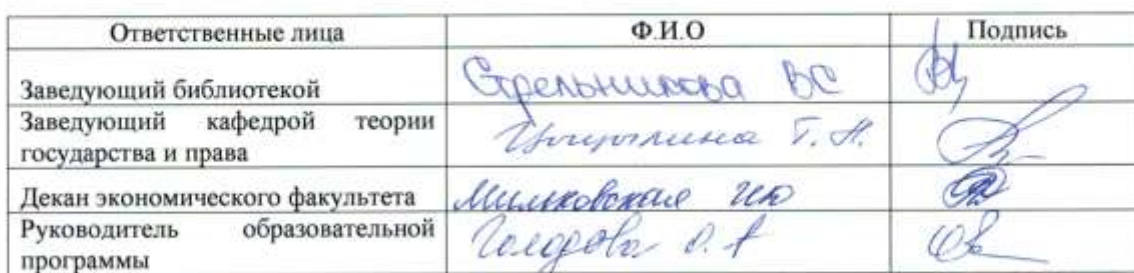 Ответственные лица Ф.И.О Подпись
Заведующий библиотекой Стрельникова ВС
Заведующий кафедрой теории
государства и права Т. Н.
Декан экономического факультета Милковская
Руководитель образовательной
программы О. А